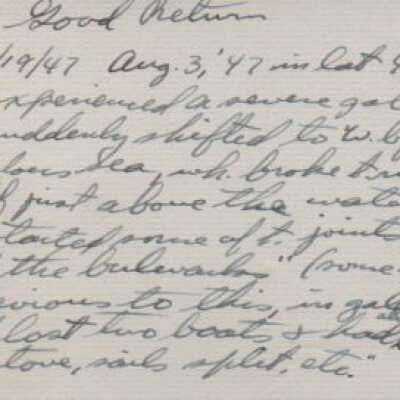 Good Return
/19/47 Aug. 3, '47 in lat 4
xperienced a severe gal
uddenly shifted to W. by
lous sea, wh. broke t. ru
f just above the wate
tarted some of t. joints
the bulwarks" (some
evious to this, in gale
lost two boats & had
tove, sails split, etc."